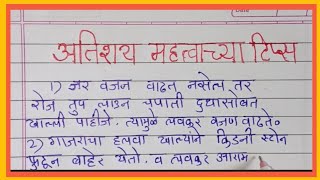 अतिशय महत्वाच्या टिप्स
1) जर वजन वाढत नसेल तर
रोज तुप लाउन चपाती दुधासोबत
खाल्ली पाहीजे. त्यामुळे लवकर वजण वाढते.
2) गाजराचा हलवा खाल्याने किडनी स्टोन
फुटून बाहेर येतो. व लवकर आराम